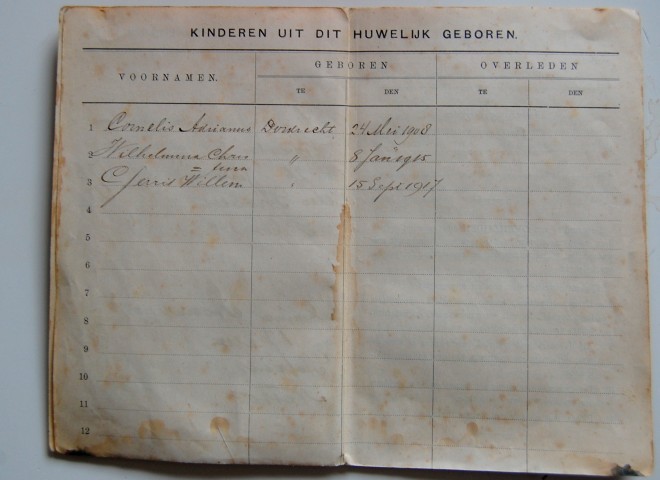 KINDEREN UIT DIT HUWELIJK GEBOREN.
VOORNAMEN. GEBOREN OVERLEDEN
TE DEN TE DEN
1 Cornelis Adrianus Dordrecht 24 Mei 1908
2 Wilhelmina Chris= " 8 Jan 1915
tina
3 Gerrit Willem " 15 Sept 1917
4
5
6
7
8
9
10
11
12